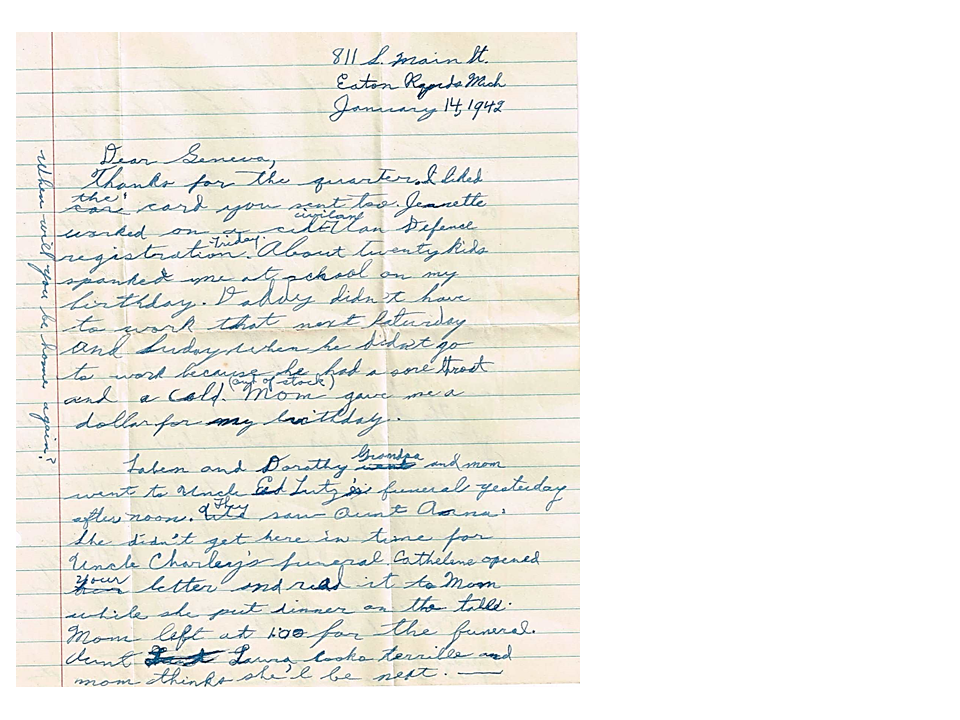 811 S. Main St.
Eaton Rapids Mich
January 14, 1942
Dear Geneva,
Thanks for the quarter. I liked
the card you sent too. Jeanette
worked on a civilian Defence
registration Friday. About twenty kids
spanked me at school on my
birthday. Daddy didn't have
to work that next Saturday
and Suday when he didn't go
to work because he had a sore throt
(out of stock)
and a cold. Mom gave me a
dollar for my birthday.
Laben and Dorathy Grandpa and mom
went to Uncle Ed Lutz's funeral yesterday
after noon. They saw Aunt Anna.
She didn't get here in time for
Uncle Charley's funeral Cathelene opened
your letter and read it to Mom
while she put dinner on the table.
Mom left at 1:00 for the funeral.
Aunt Laura looks terrille and
mom thinks she'll be next.
When will you be home again?